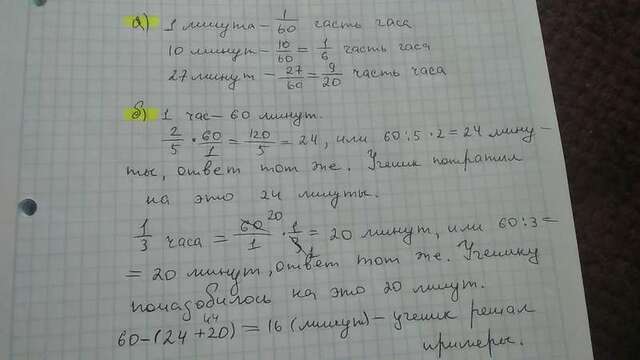 а) 1 минута – 1/60 часть часа
10 минут – 10/60 = 1/6 часть часа
27 минут – 27/60 = 9/20 часть часа
б) 1 час – 60 минут.
2/5 · 60/1 = 120/5 = 24, или 60:5·2=24 мину-
ты, ответ тот же. Ученик потратил
на это 24 минуты.
1/3 часа = 60 20/1 · 1/3 1 = 20 минут, или 60:3=
= 20 минут, ответ тот же. Ученику
понадобилось на это 20 минут.
44
60-(24+20)=16 (минут) – ученик решал
примеры.